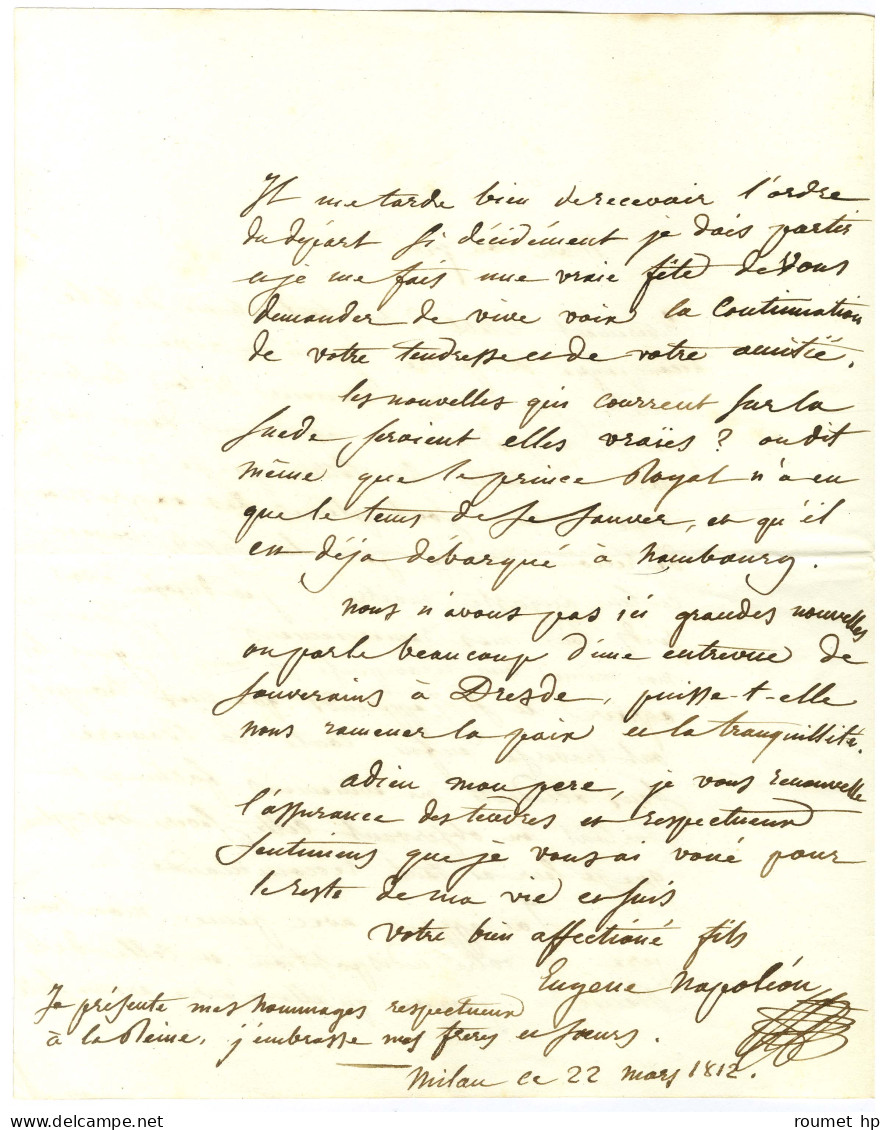 Il me tarde bien de recevoir l'ordre
du départ si décidément je dois partir
et je me fais une vraie fête de vous
demander de vive voix la Continuation
de votre tendresse et de votre amitié.
les nouvelles qui courrent sur la
Suede seraient elles vraïes ? on dit
même que le prince Royal n'a eu
que le tems de se sauver, et qu'il
est déja débarqué à hambourg.
nous n'avons pas ici grandes nouvelles
on parle beaucoup d'une entrevue de
souverains à Dresde, puisse-t-elle
nous ramener la paix et la tranquillité.
adieu mon pere, je vous renouvelle
l'assurance des tendres et respectueux
sentimens que je vous ai voué pour
le reste de ma vie et suis
votre bien affectioné fils
Eugene Napoléon
Je présente mes hommages respectueux
à la Reine, j'embrasse mes freres et soeurs.
Milan ce 22 mars 1812.
DELCAMPE.NET
roumet hp